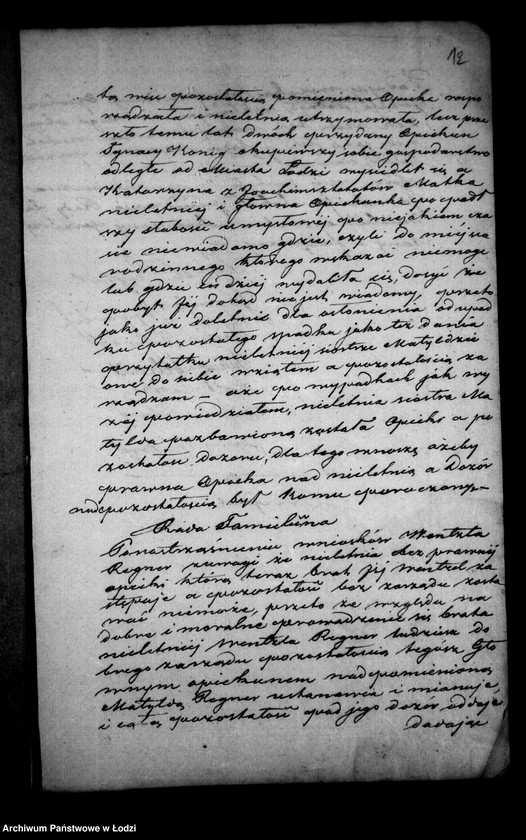 12
tą wiec pozostałością pomieniona Opieke rospo
rządzała i nieletnią utrzymowała, lecz prze
szło temu lat dwóch przydany Opiekun
Ignacy König okupiwszy sobie gospodarstwo
odległe od Miasta Łodzi wysiedlił się, a
Katarzyna z Joachimsthalów Matka
nieletniéj i główna Opiekunka popadł
szy słabość umysłowéj po niejakiem cza
sie niewiadomo gdzie, czyli do miejsca
rodzinnego którego wskazać niemoge
lub gdzie indziej wydaliła się, dosyć że
pobyt jéj dokąd nie jest wiadomy, przeto
jako już doletnie dla osłonienia od upad
ku pozostałego spadku jako też dania
przytułku nieletniéj siostrze Matyldzie
one do siebie wziąłem a pozostałością za
rządzam — aże po wypadkach jak wy
żéj powiedziałem, nieletnia siostra Ma
tylda pozbawioną została Opieki a po
zostałość dozoru, dla tego wnoszę ażeby
prawna Opieka nad nieletnią a Dozór
nad pozostałością był komu poruczony —
Rada Familiina
Po roztrząśnieniu wniosków Wentzla
Regner zuwagi że nieletnia bez prawnéj
opieki którą teraz brat jéj Wentzel za
stępuje a pozostałość bez zarządu zosta
wać niemoże, przeto ze względu na
dobre i moralne prowadzenie się brata
nieletniéj Wentzla Regner tudzież do
brego zarządu pozostałością tegóż Głó
wnym opiekunem nadpomienioną
Matyldą Regner ustanawia i mianuje,
i całą pozostałość pod jego dozór oddaje
dodając
Archiwum Państwowe w Łodzi